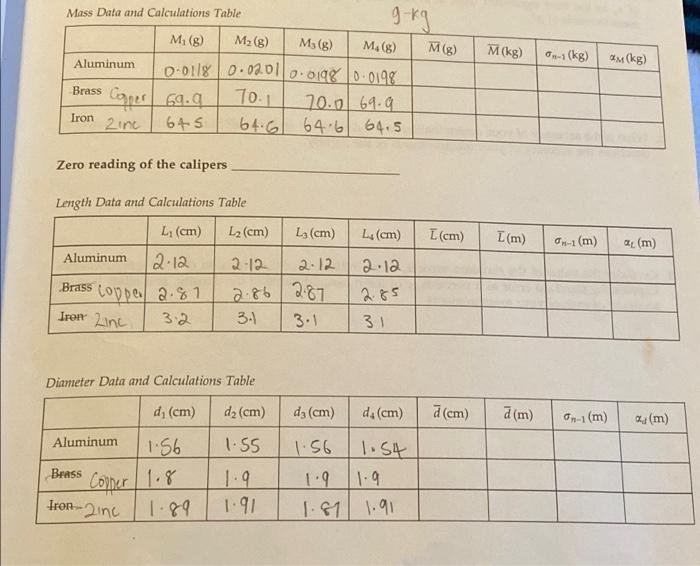 Mass Data and Calculations Table
g-kg
M₁ (g) M₂ (g) M₃ (g) M₄ (g) M̄ (g) M̄ (kg) σₙ₋₁ (kg) αM (kg)
Aluminum 0.0118 0.0201 0.0198 0.0198
Brass Copper 69.9 70.1 70.0 69.9
Iron Zinc 64.5 64.6 64.6 64.5
Zero reading of the calipers
Length Data and Calculations Table
L₁ (cm) L₂ (cm) L₃ (cm) L₄ (cm) L̄ (cm) L̄ (m) σₙ₋₁ (m) αL (m)
Aluminum 2.12 2.12 2.12 2.12
Brass Copper 2.87 2.86 2.87 2.85
Iron Zinc 3.2 3.1 3.1 3.1
Diameter Data and Calculations Table
d₁ (cm) d₂ (cm) d₃ (cm) d₄ (cm) d̄ (cm) d̄ (m) σₙ₋₁ (m) αd (m)
Aluminum 1.56 1.55 1.56 1.54
Brass Copper 1.8 1.9 1.9 1.9
Iron Zinc 1.89 1.91 1.87 1.91